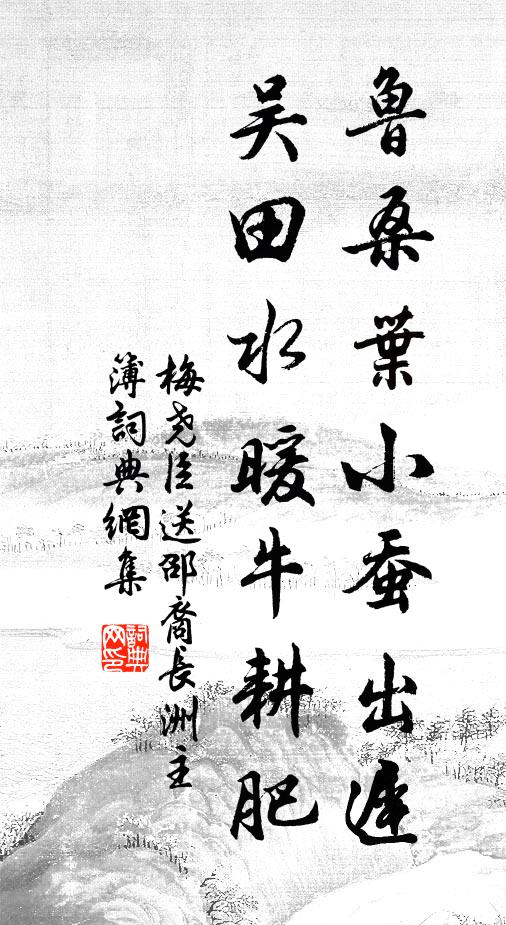 魯桑葉小蚕出遲
吴田水暖牛耕肥
梅尧臣送邵裔長洲主
簿詞典網集
詞典
网印